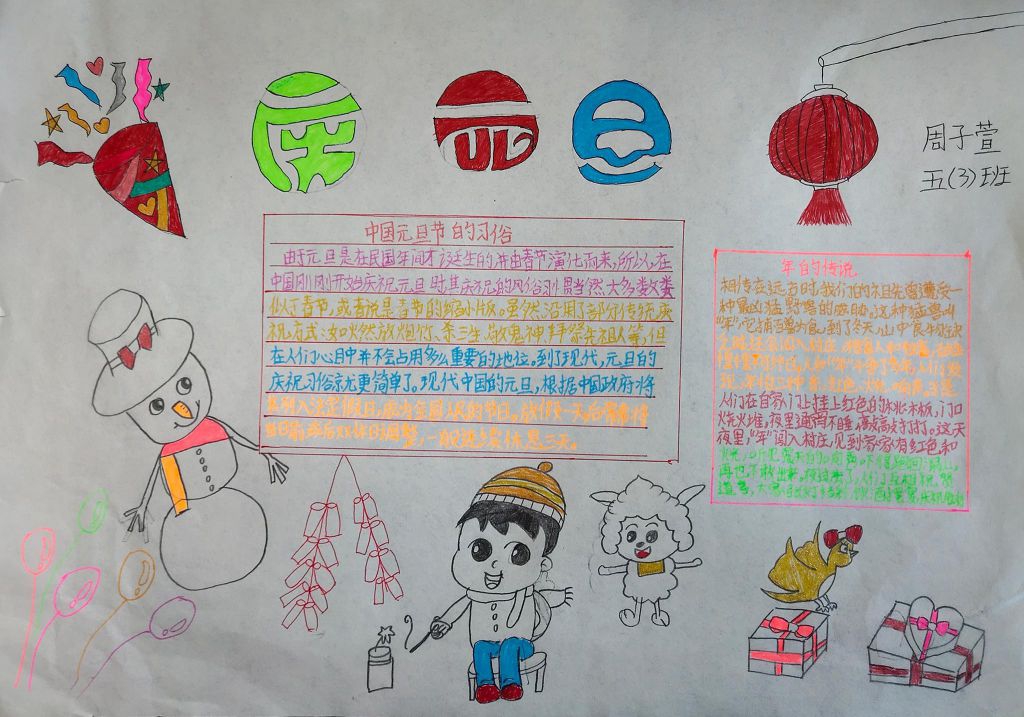 庆元旦
周子萱
五(3)班
中国元旦节的习俗
由于元旦是在民国年间才诞生的,并由春节演化而来,所以,在
中国刚刚开始庆祝元旦时,其庆祝的风俗习惯当然大多数类
似于春节,或者说是春节的缩小版。虽然沿用了部分传统庆
祝方式:如燃放炮竹、杀三生、敬鬼神、拜祭先祖人等,但
在人们心目中并不会占用多么重要的地位。到了现代,元旦的
庆祝习俗就更简单了。现代中国的元旦,根据中国政府将
其列入法定假日,成为全国人民的节日。放假一天后常常将
当日前或后双休日调整,一般连续休息三天。
年的传说
相传在远古时,我们的祖先曾遭受一
种最凶猛野兽的威胁。这种猛兽叫
"年",它捕百兽为食,到了冬天,山中食物缺
人们在自家门上挂上红色的桃木板,门口
烧火堆,夜里通宵不睡,敲敲打打。这天
夜里,"年"闯入村庄,见到家家有红色和
再也不敢出来。